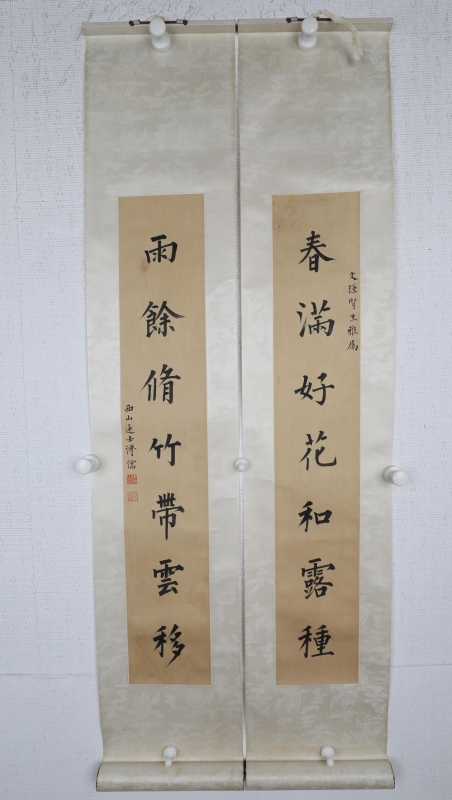 春滿好花和露種
文強賢主雅屬
雨餘脩竹帶雲移
西山逸士溥儒